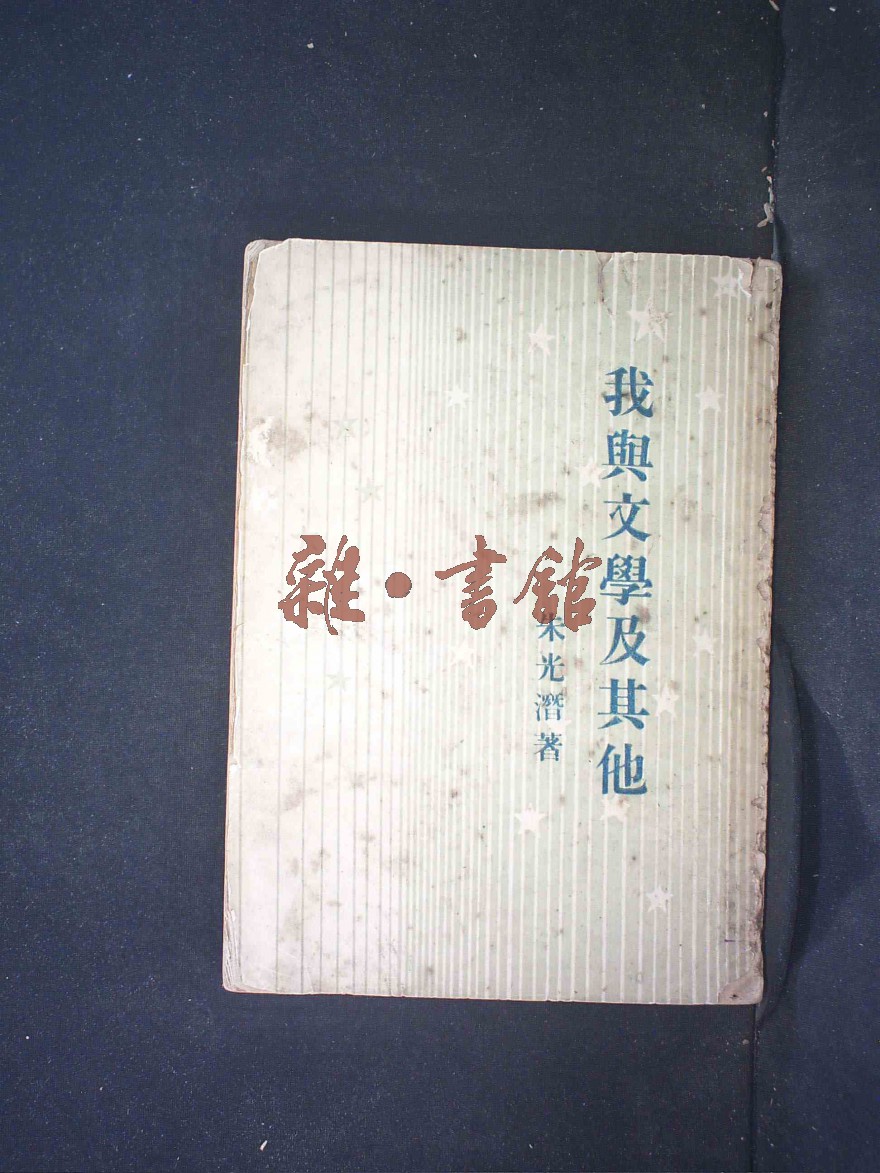 我與文學及其他
朱光潛著
雜·書館